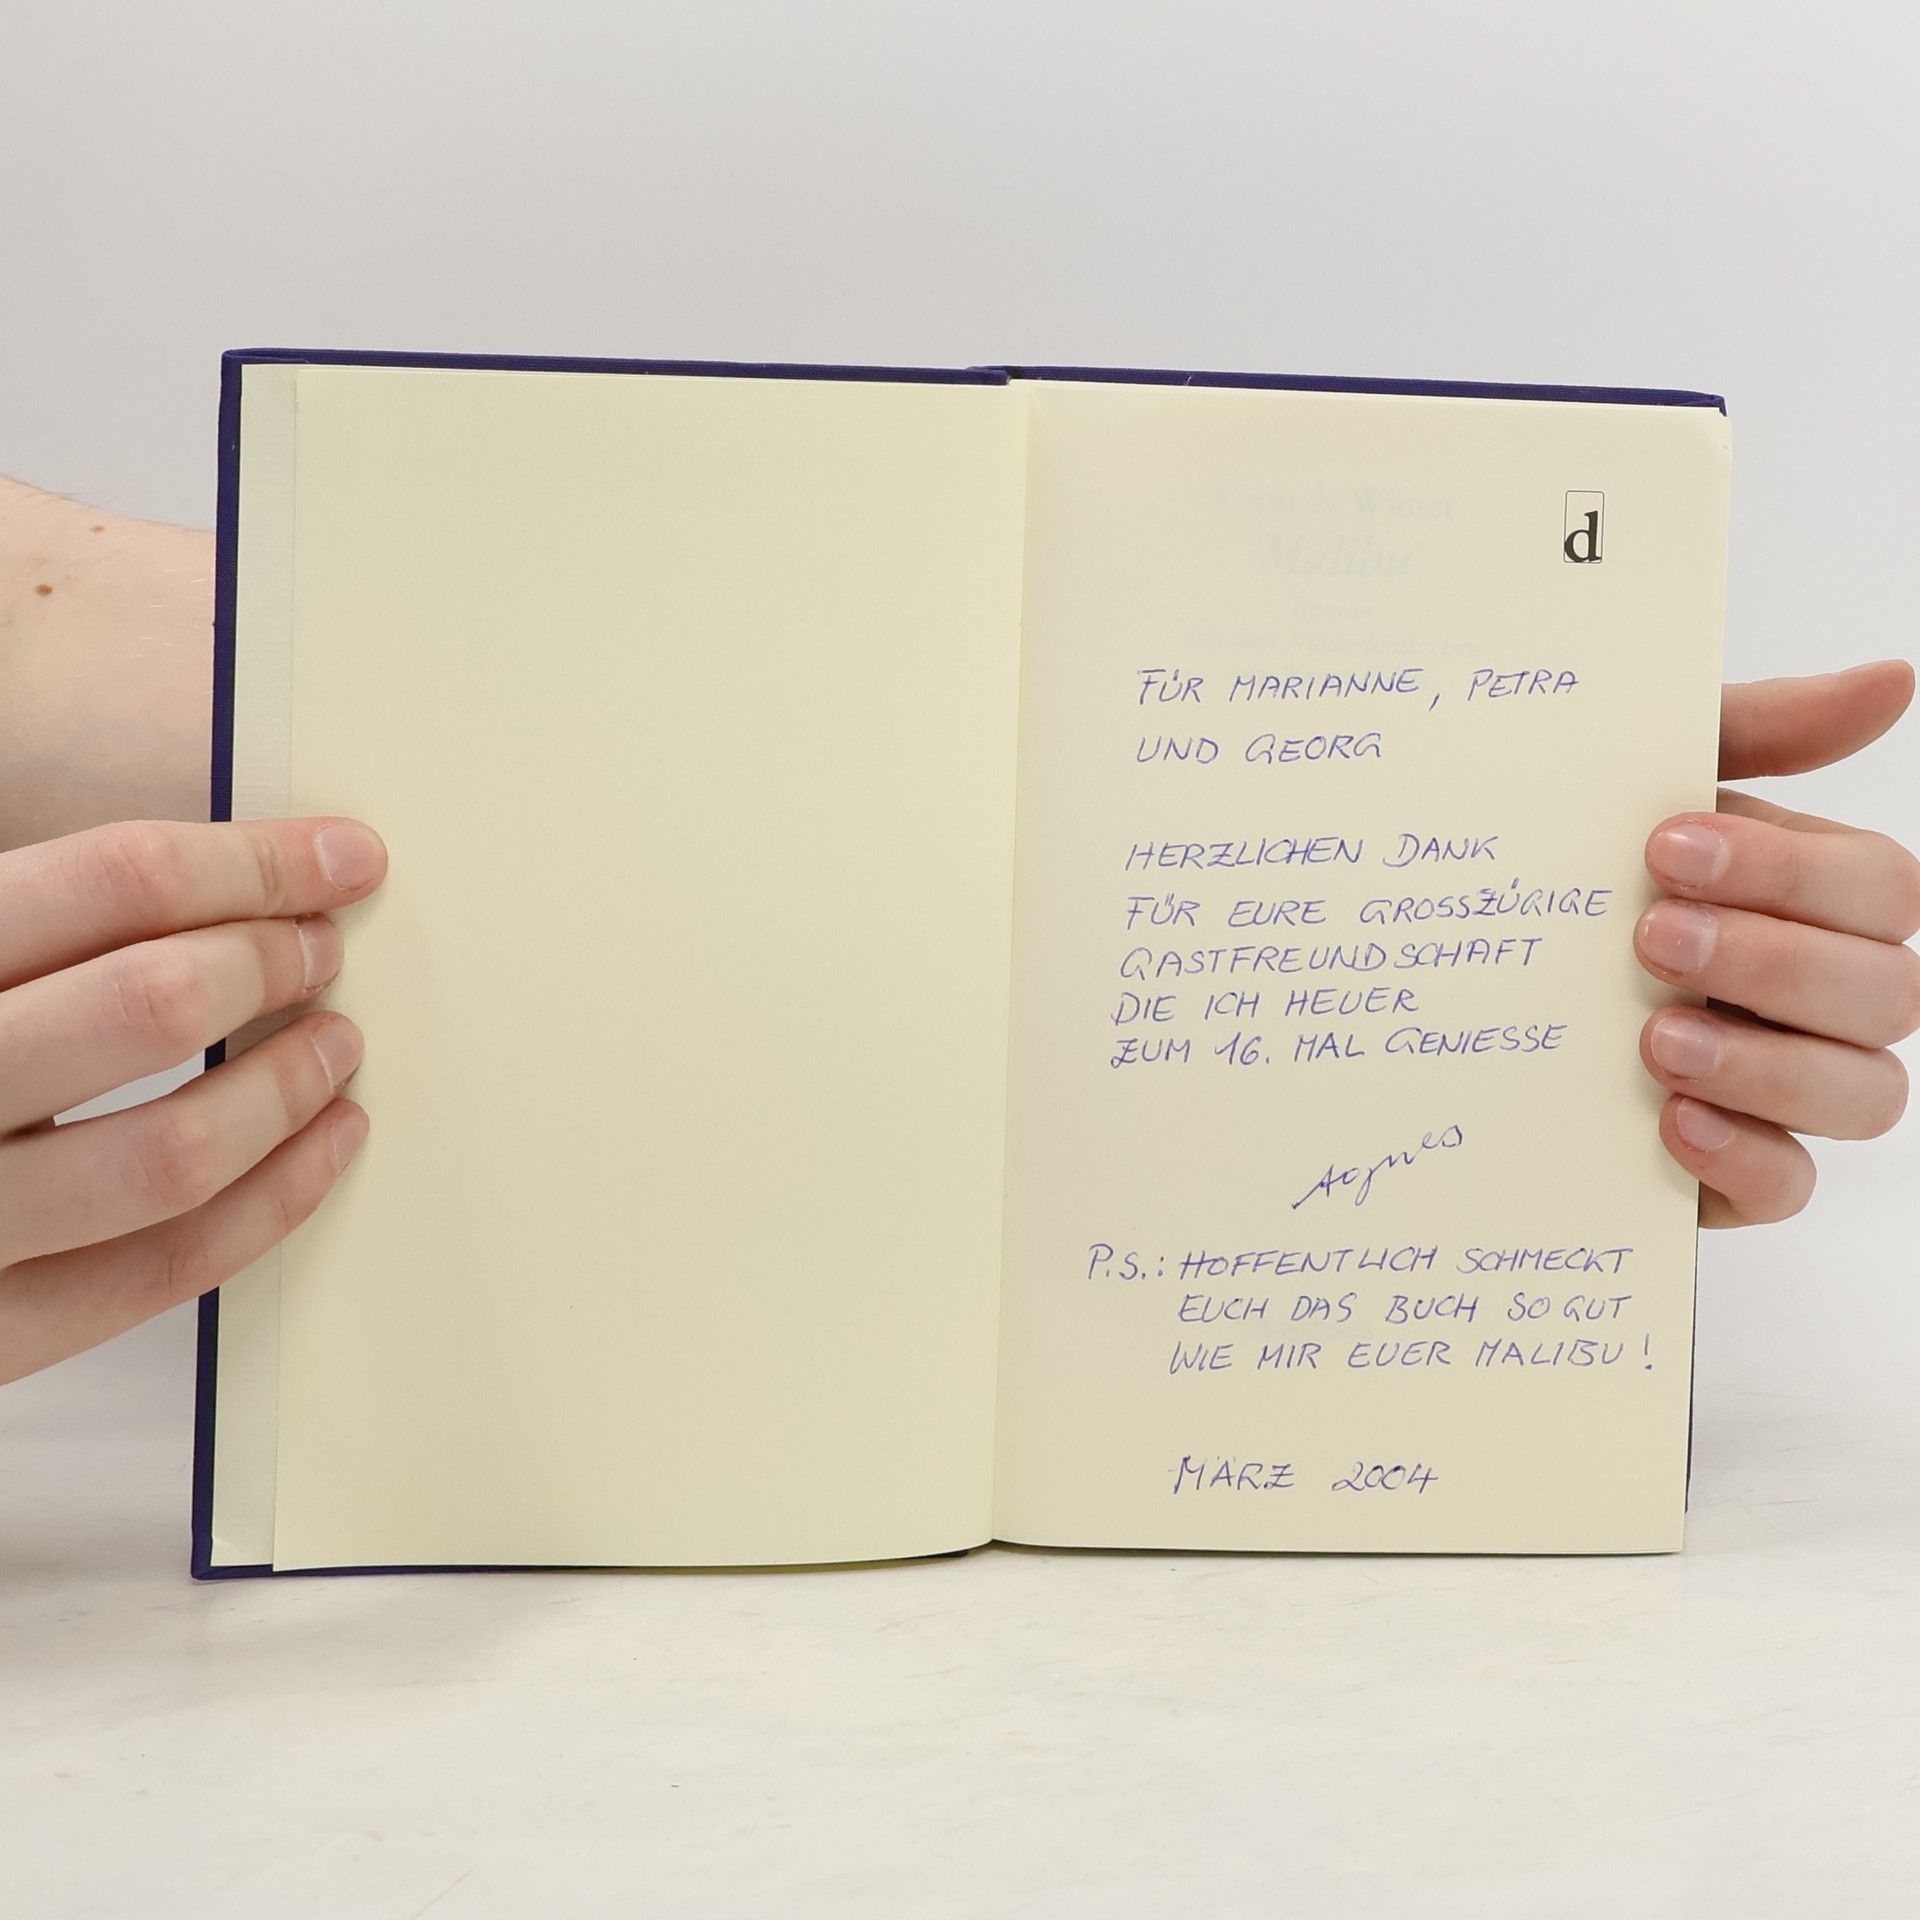 d
de Winter
Malibu
Roman
FÜR MARIANNE, PETRA
UND GEORG
HERZLICHEN DANK
FÜR EURE GROSSZÜGIGE
GASTFREUNDSCHAFT
DIE ICH HEUER
ZUM 16. MAL GENIESSE
Agnes
P.S.: HOFFENTLICH SCHMECKT
EUCH DAS BUCH SO GUT
WIE MIR EUER MALIBU!
MÄRZ 2004